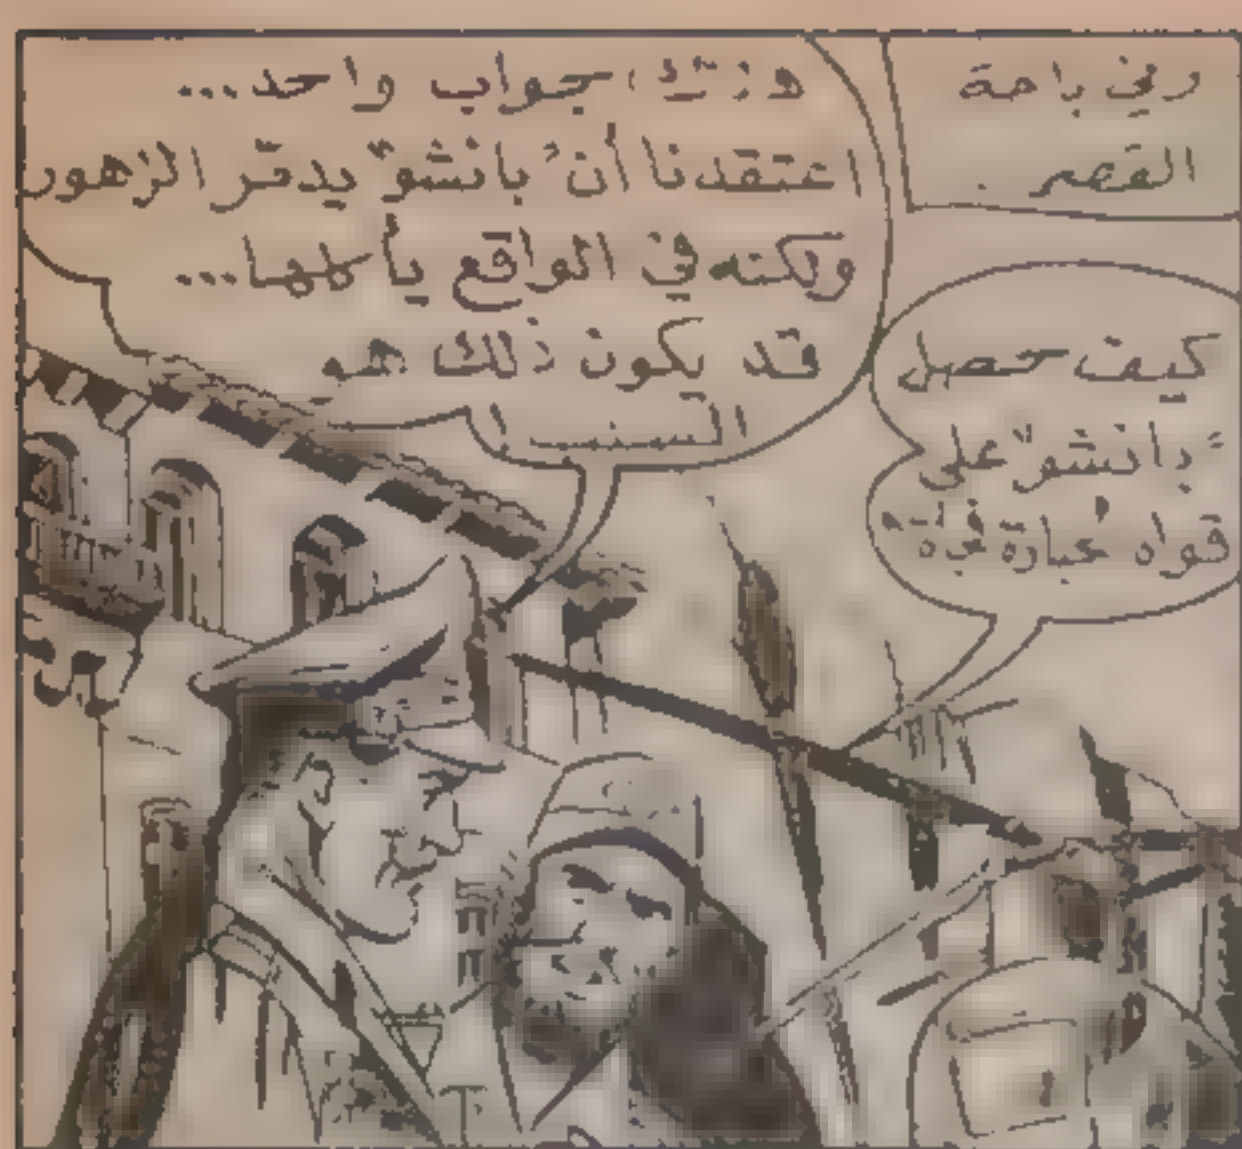 وفي باحة
القصر
كيف حصل
"بانشو" على
قواه
هناك جواب واحد...
اعتقدنا أن "بانشو" يدمّر الزهور
ولكنه في الواقع يأكلها...
قد يكون ذلك هو
السبب!